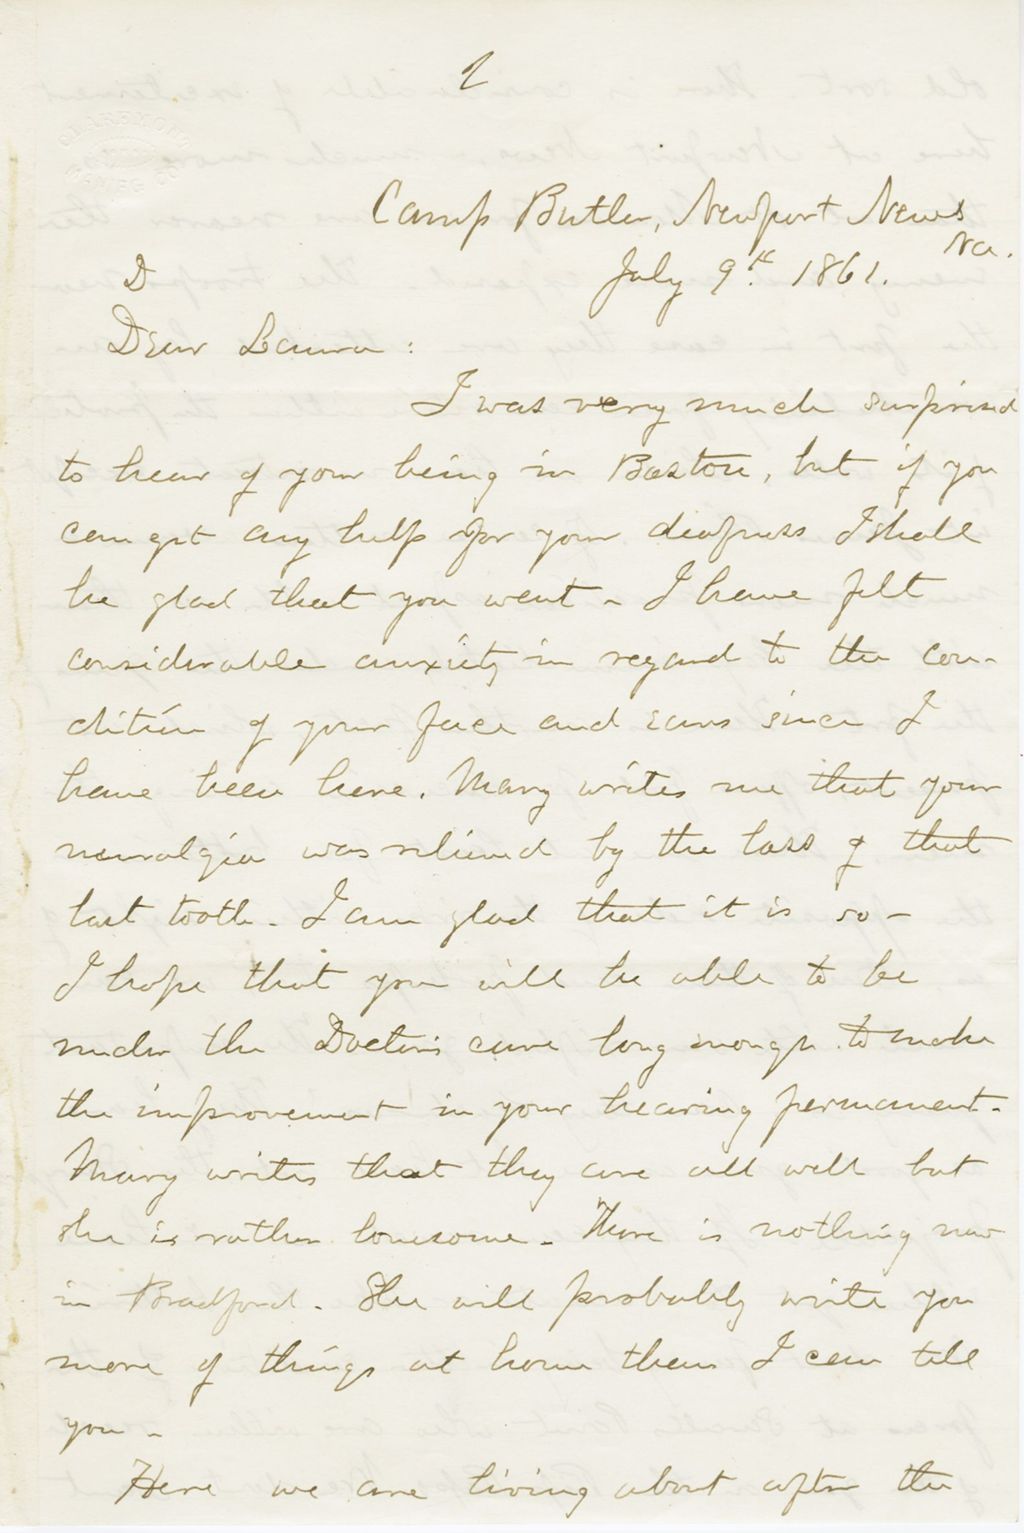 2
Camp Butler, Newport News
Va.
July 9th 1861.
D
Dear Laura :
I was very much surprised
to hear of your being in Boston, but if you
can get any help for your deafness I shall
be glad that you went - I have felt
considerable anxiety in regard to the con-
dition of your face and ears since I
have been here. Mary writes me that your
neuralgia was relieved by the loss of that
last tooth - I am glad that it is so -
I hope that you will be able to be
under the Doctors care long enough to make
the improvement in your hearing permanent -
Mary writes that they are all well but
she is rather lonesome - There is nothing new
in Bradford - She will probably write you
more of things at home than I can tell
you -
Here we are living about after the